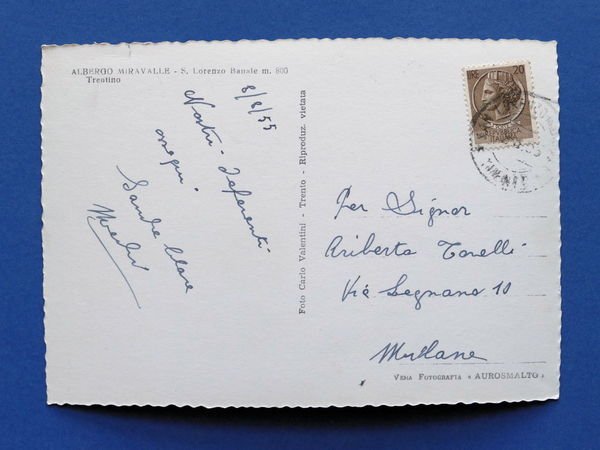 ALBERGO MIRAVALLE - S. Lorenzo Banale m. 800
Trentino
8/8/55
Nostri
ossequi
Sandra Clara
Foto Carlo Valentini - Trento - Riproduz. vietata
LIRE 20
Per Signor
Ariberto Torelli
Via Legnano 10
Milano
VERA FOTOGRAFIA « AUROSMALTO »